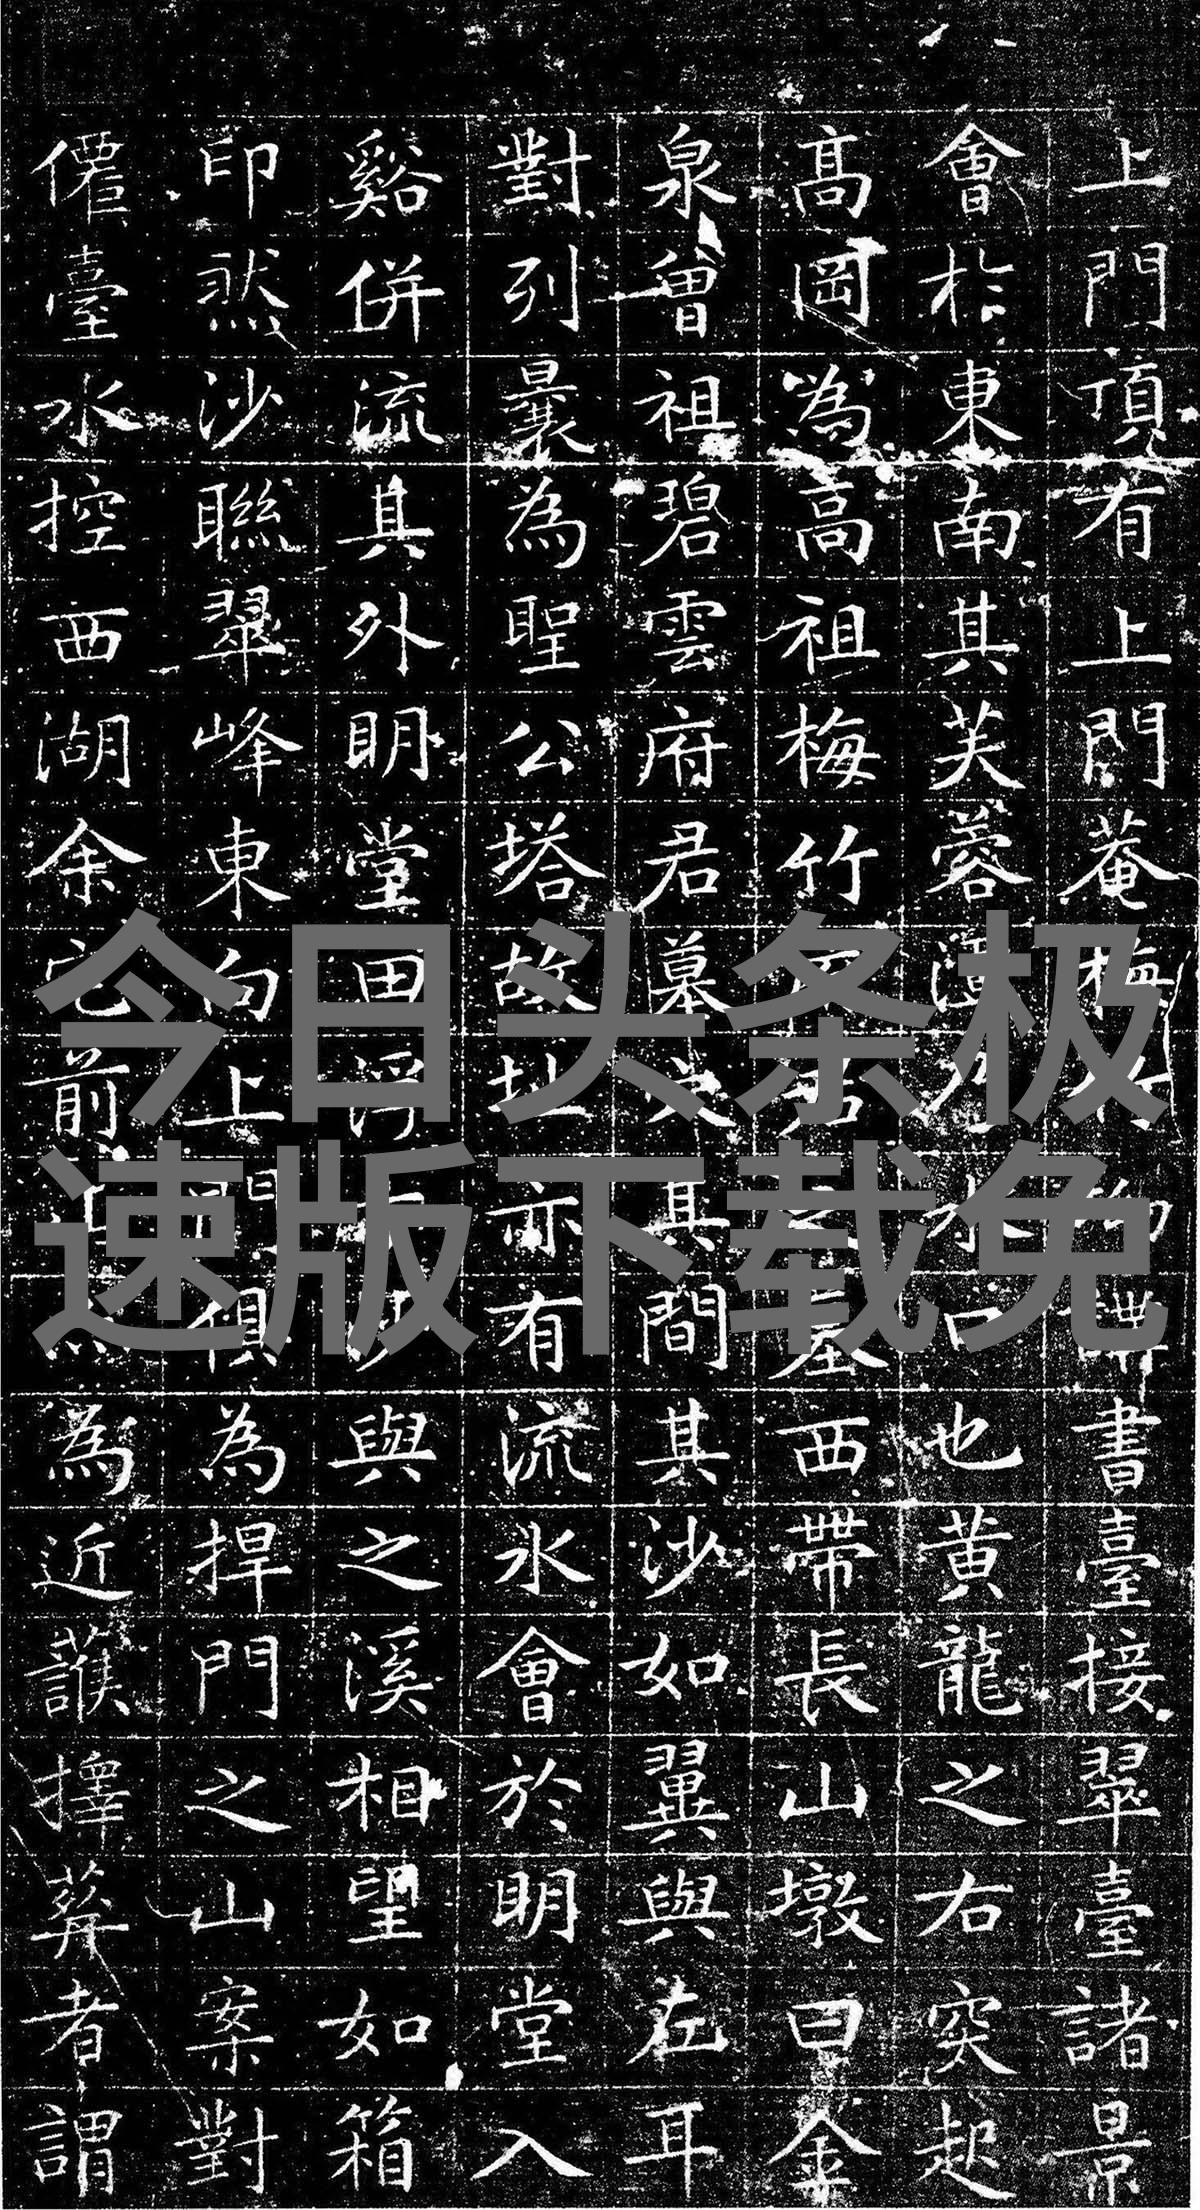 上門頂有上門菴梅書臺接翠臺諸景
會於東南其芙蓉水口也黃龍之右突起
高岡為高祖梅竹墓西帶長山墩曰金
泉曾祖碧雲府君墓其間其沙如翼與左耳
對列曩為聖公塔故址亦有流水會於明堂入
谿併流其外明堂田浮沙與之溪相望如箱
印然沙聯翠峰東向上門俱為捍門之山案對
僊臺水控西湖余前為近護擇葬者謂
今日头条极
速版下载免